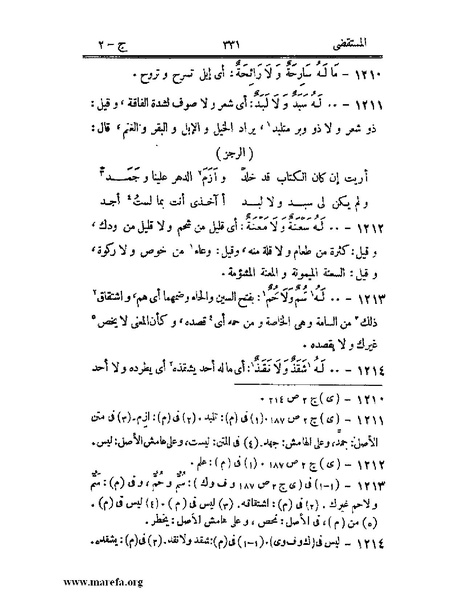 المستقضى ٣٣١ ج - ٢
١٢١٠ - مَا لَهُ سَارِحَةٌ وَلَا رَائِحَةٌ: أى إبل تسرح و تروح.
١٢١١ - ٠٠ لَهُ سَبَدٌ وَلَا لَبَدٌ: أى شعر و لا صوف لشدة الفاقة، و قيل:
ذو شعر و لا ذو وبر متلبد١، يراد الخيل و الإبل و البقر و الغنم، قال:
(الرجز)
أريت إن كان الكتاب قد خلد و أزم٢ الدهر علينا و جمد٣
و لم يكن لى سبد و لا لبد أ آخذى أنت بما لست٤ أجد
١٢١٢ - ٠٠ لَهُ سَعْنَةٌ وَلَا مَعْنَةٌ: أى قليل من شحم و لا قليل من ودك،
و قيل: كثرة من طعام و لا قلة منه، وقيل: وعاء١ من خوص و لا ركوة،
و قيل: السعنة الميمونة و المعنة المشؤمة.
١٢١٣ - ٠٠ لَهُ١ سُمٌّ وَلَا حُمٌّ١: بفتح السين والحاء وضمهما أى هم، و اشتقاق٢
ذلك٣ من السامة وهى الخاصة و من حمه أى٤ قصده، و كأن المعنى لا يخص٥
غيرك و لا يقصده.
١٢١٤ - ٠٠ لَهُ١ شَقَذٌ وَلَا نَقَذٌ١: أى ما له أحد يشقذه٢ أى يطرده و لا أحد
١٢١٠ - (ى) ج ٢ ص ٢١٤.
١٢١١ - (ى) ج ٢ ص ١٨٧. (١) فى (م): تلبد. (٢) فى (م): ازم. (٣) فى متن
الأصل: جمد، وعلى الهامش: جهد. (٤) فى المتن: ليست، وعلى هامش الأصل: ليس.
١٢١٢ - (ى) ج ٢ ص ١٨٧. (١) فى (م): علم.
١٢١٣ - (١-١) فى (ى ج ٢ ص ١٨٧ و ف وك): سُمٌّ و حُمٌّ، و فى (م): سَمٌّ
ولا حم غيرك. (٢) فى (م): اشتقاقه. (٣) ليس فى (م). (٤) ليس فى (م).
(٥) من (م)، فى الأصل: تخص، و على هامش الأصل: يخطر.
١٢١٤ - ليس فى (ك وف وى). (١-١) فى (م): شقد ولا نقد. (٢) فى (م): يشقده.
www.marefa.org